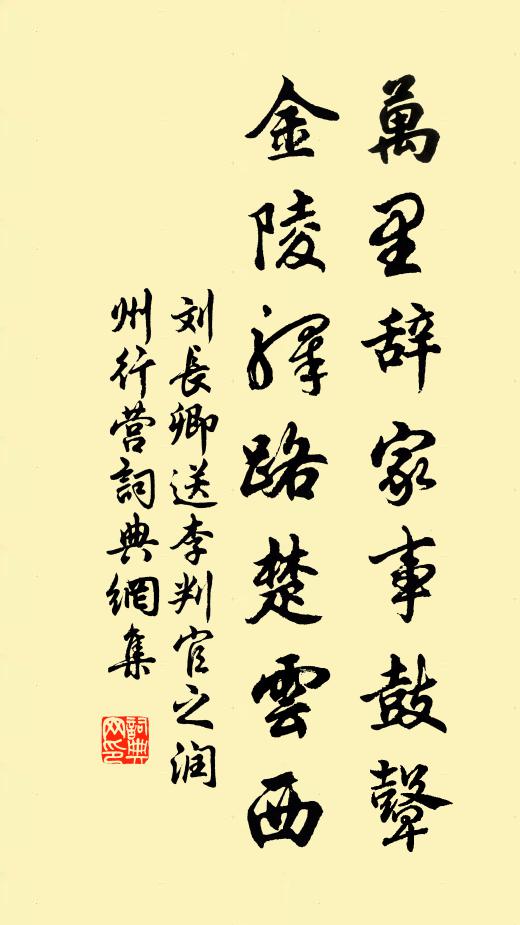 萬里辞家事鼓鼙
金陵驛路楚雲西
刘長卿送李判官之润
州行营詞典網集
詞典网印